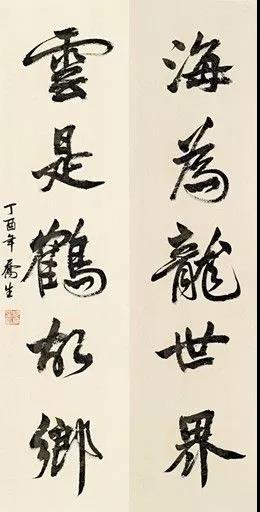 海為龍世界
雲是鶴故鄉
丁酉年喬生